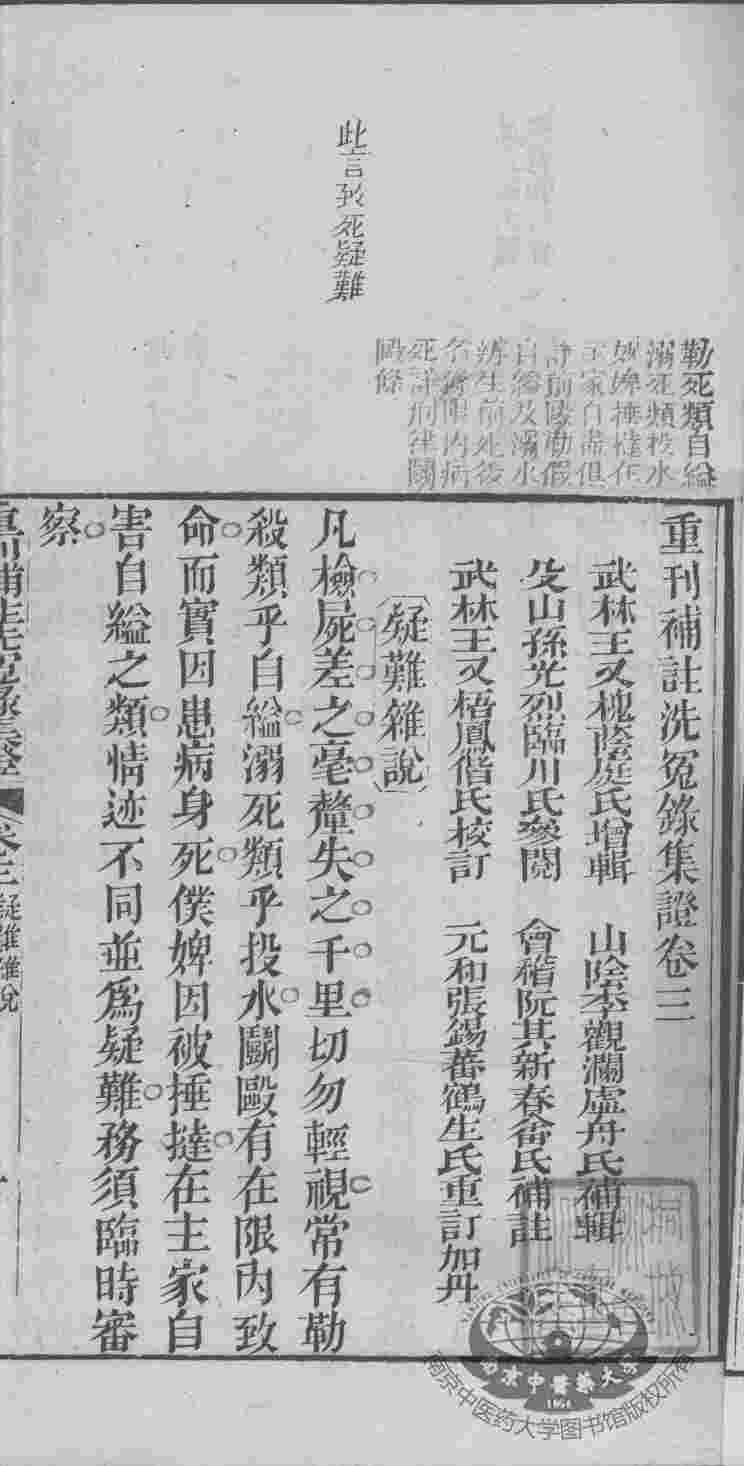 此言致死疑難
勒死類自縊
溺死類投水
奴婢捶撻在
主家自盡俱
詳前毆勒假
自縊及溺水
辨生前死後
各條限內病
死詳刑律鬬
毆條
重刊補註洗冤錄集證卷三
武林王又槐蔭庭氏增輯 山陰李觀瀾虛舟氏補輯
殳山孫光烈臨川氏參閱 會稽阮其新春畬氏補註
武林王又梧鳳偕氏校訂 元和張錫蕃鶴生氏重訂加丹
疑難雜說
凡檢屍差之毫釐失之千里切勿輕視常有勒
殺類乎自縊溺死類乎投水鬬毆有在限內致
命而實因患病身死僕婢因被捶撻在主家自
害自縊之類情迹不同並為疑難務須臨時審
察
重刊補註洗冤錄集證 卷三 疑難雜說
南京中醫藥大學
1954
南京中医药大学图书馆版权所有